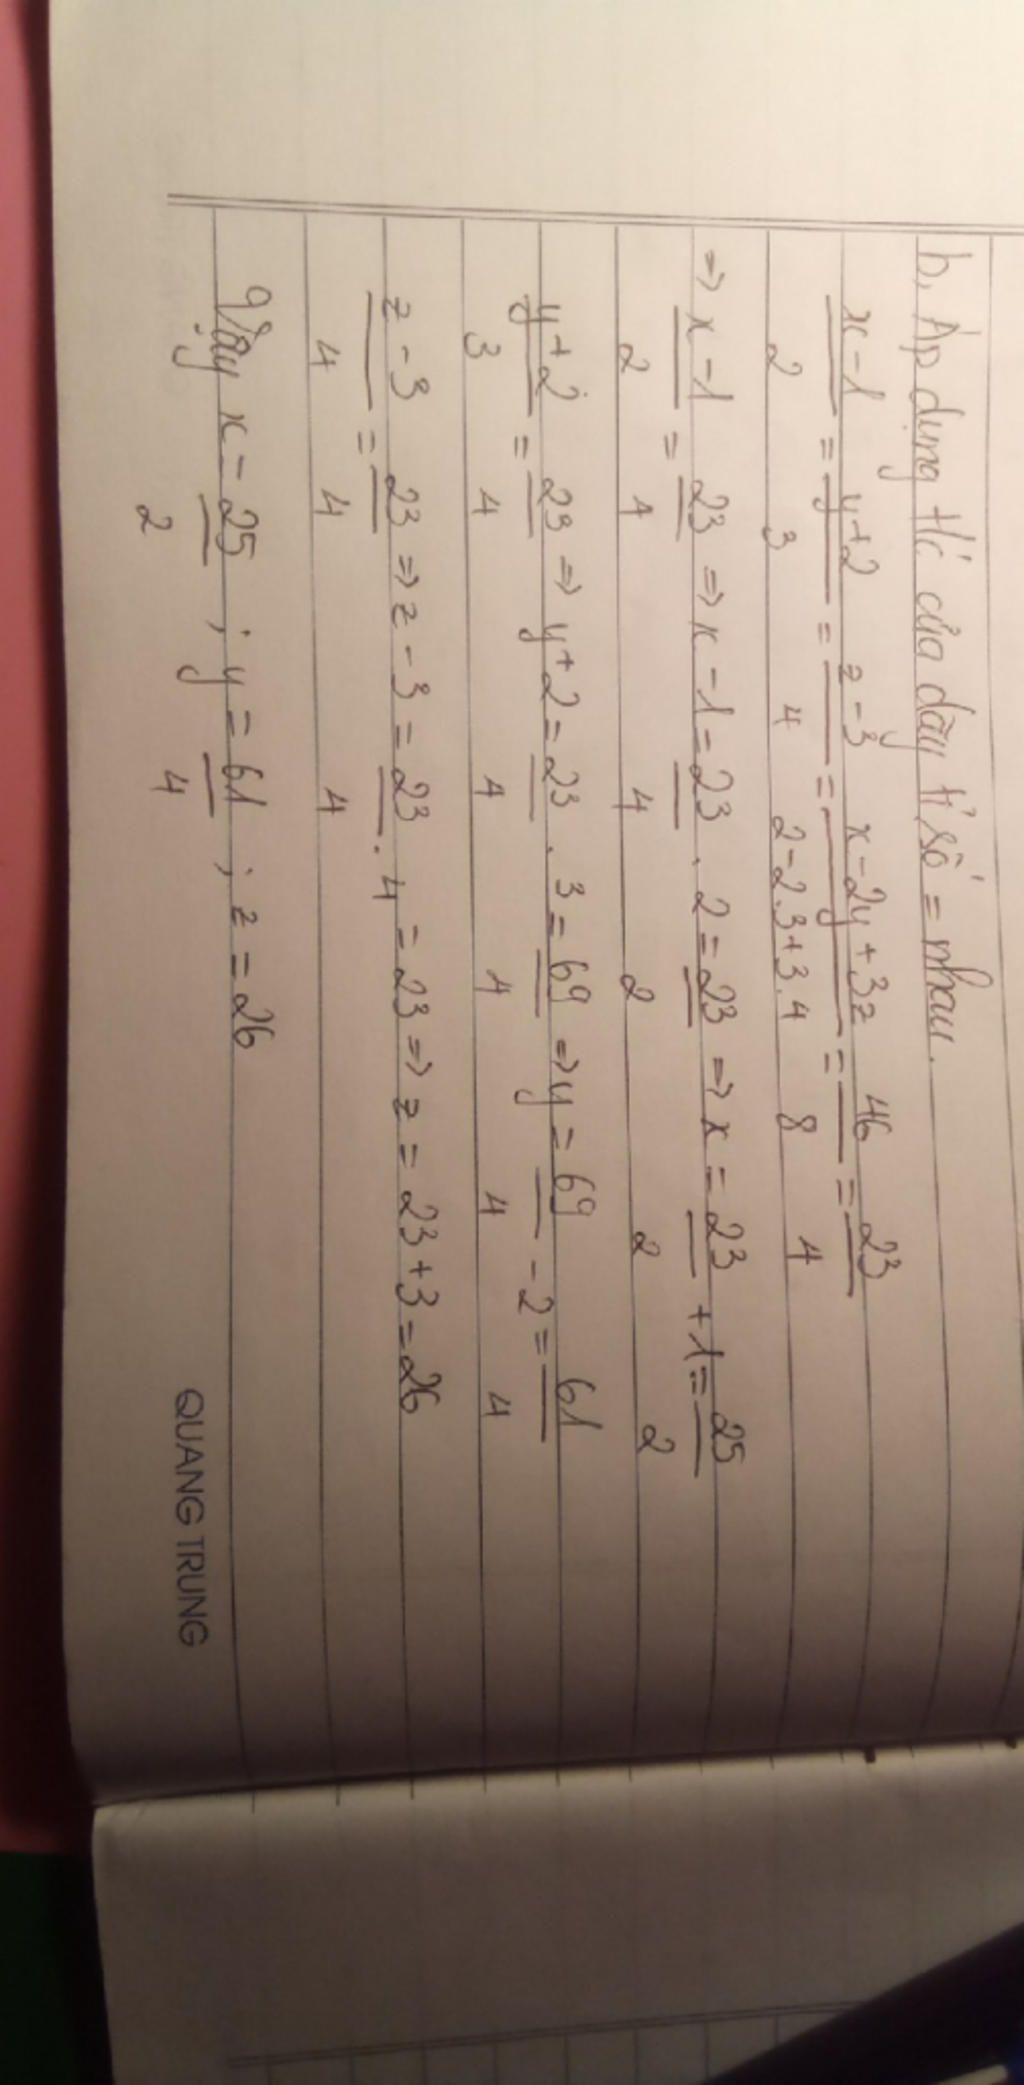 b, Áp dụng t/c của dãy tỉ số = nhau.
x-1/2 = y+2/3 = z-3/4 = x-2y+3z/2-2.3+3.4 = 46/8 = 23/4
=> x-1/2 = 23/4 => x-1 = 23/4 . 2 = 23/2 => x = 23/2 + 1 = 25/2
y+2/3 = 23/4 => y+2 = 23/4 . 3 = 69/4 => y = 69/4 - 2 = 61/4
z-3/4 = 23/4 => z-3 = 23/4 . 4 = 23 => z = 23+3 = 26
Vậy x = 25/2 ; y = 61/4 ; z = 26
QUANG TRUNG